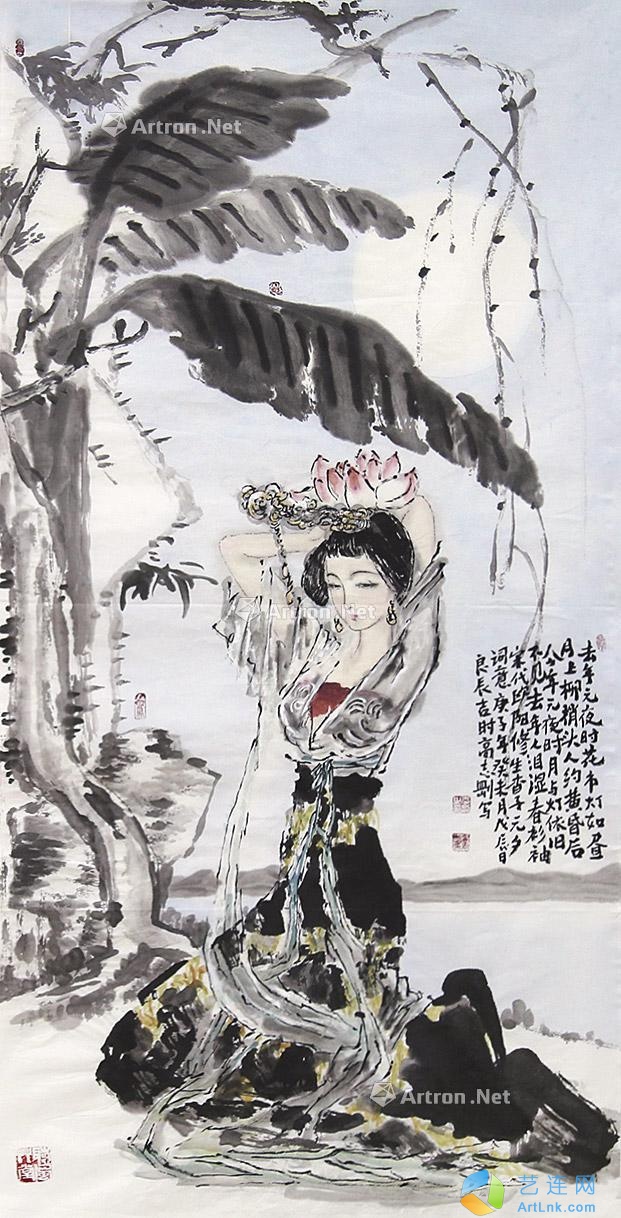 Artron.Net
Artron.Net
Artron.Net
去年元夜时花市灯如昼
月上柳梢头人约黄昏后
今年元夜时月与灯依旧
不见去年人泪湿春衫袖
宋代欧阳修生查子元夕
词意庚子年癸未月戊辰日
良辰吉时高志刚写
Artron.Net
艺连网
ArtLnk.com